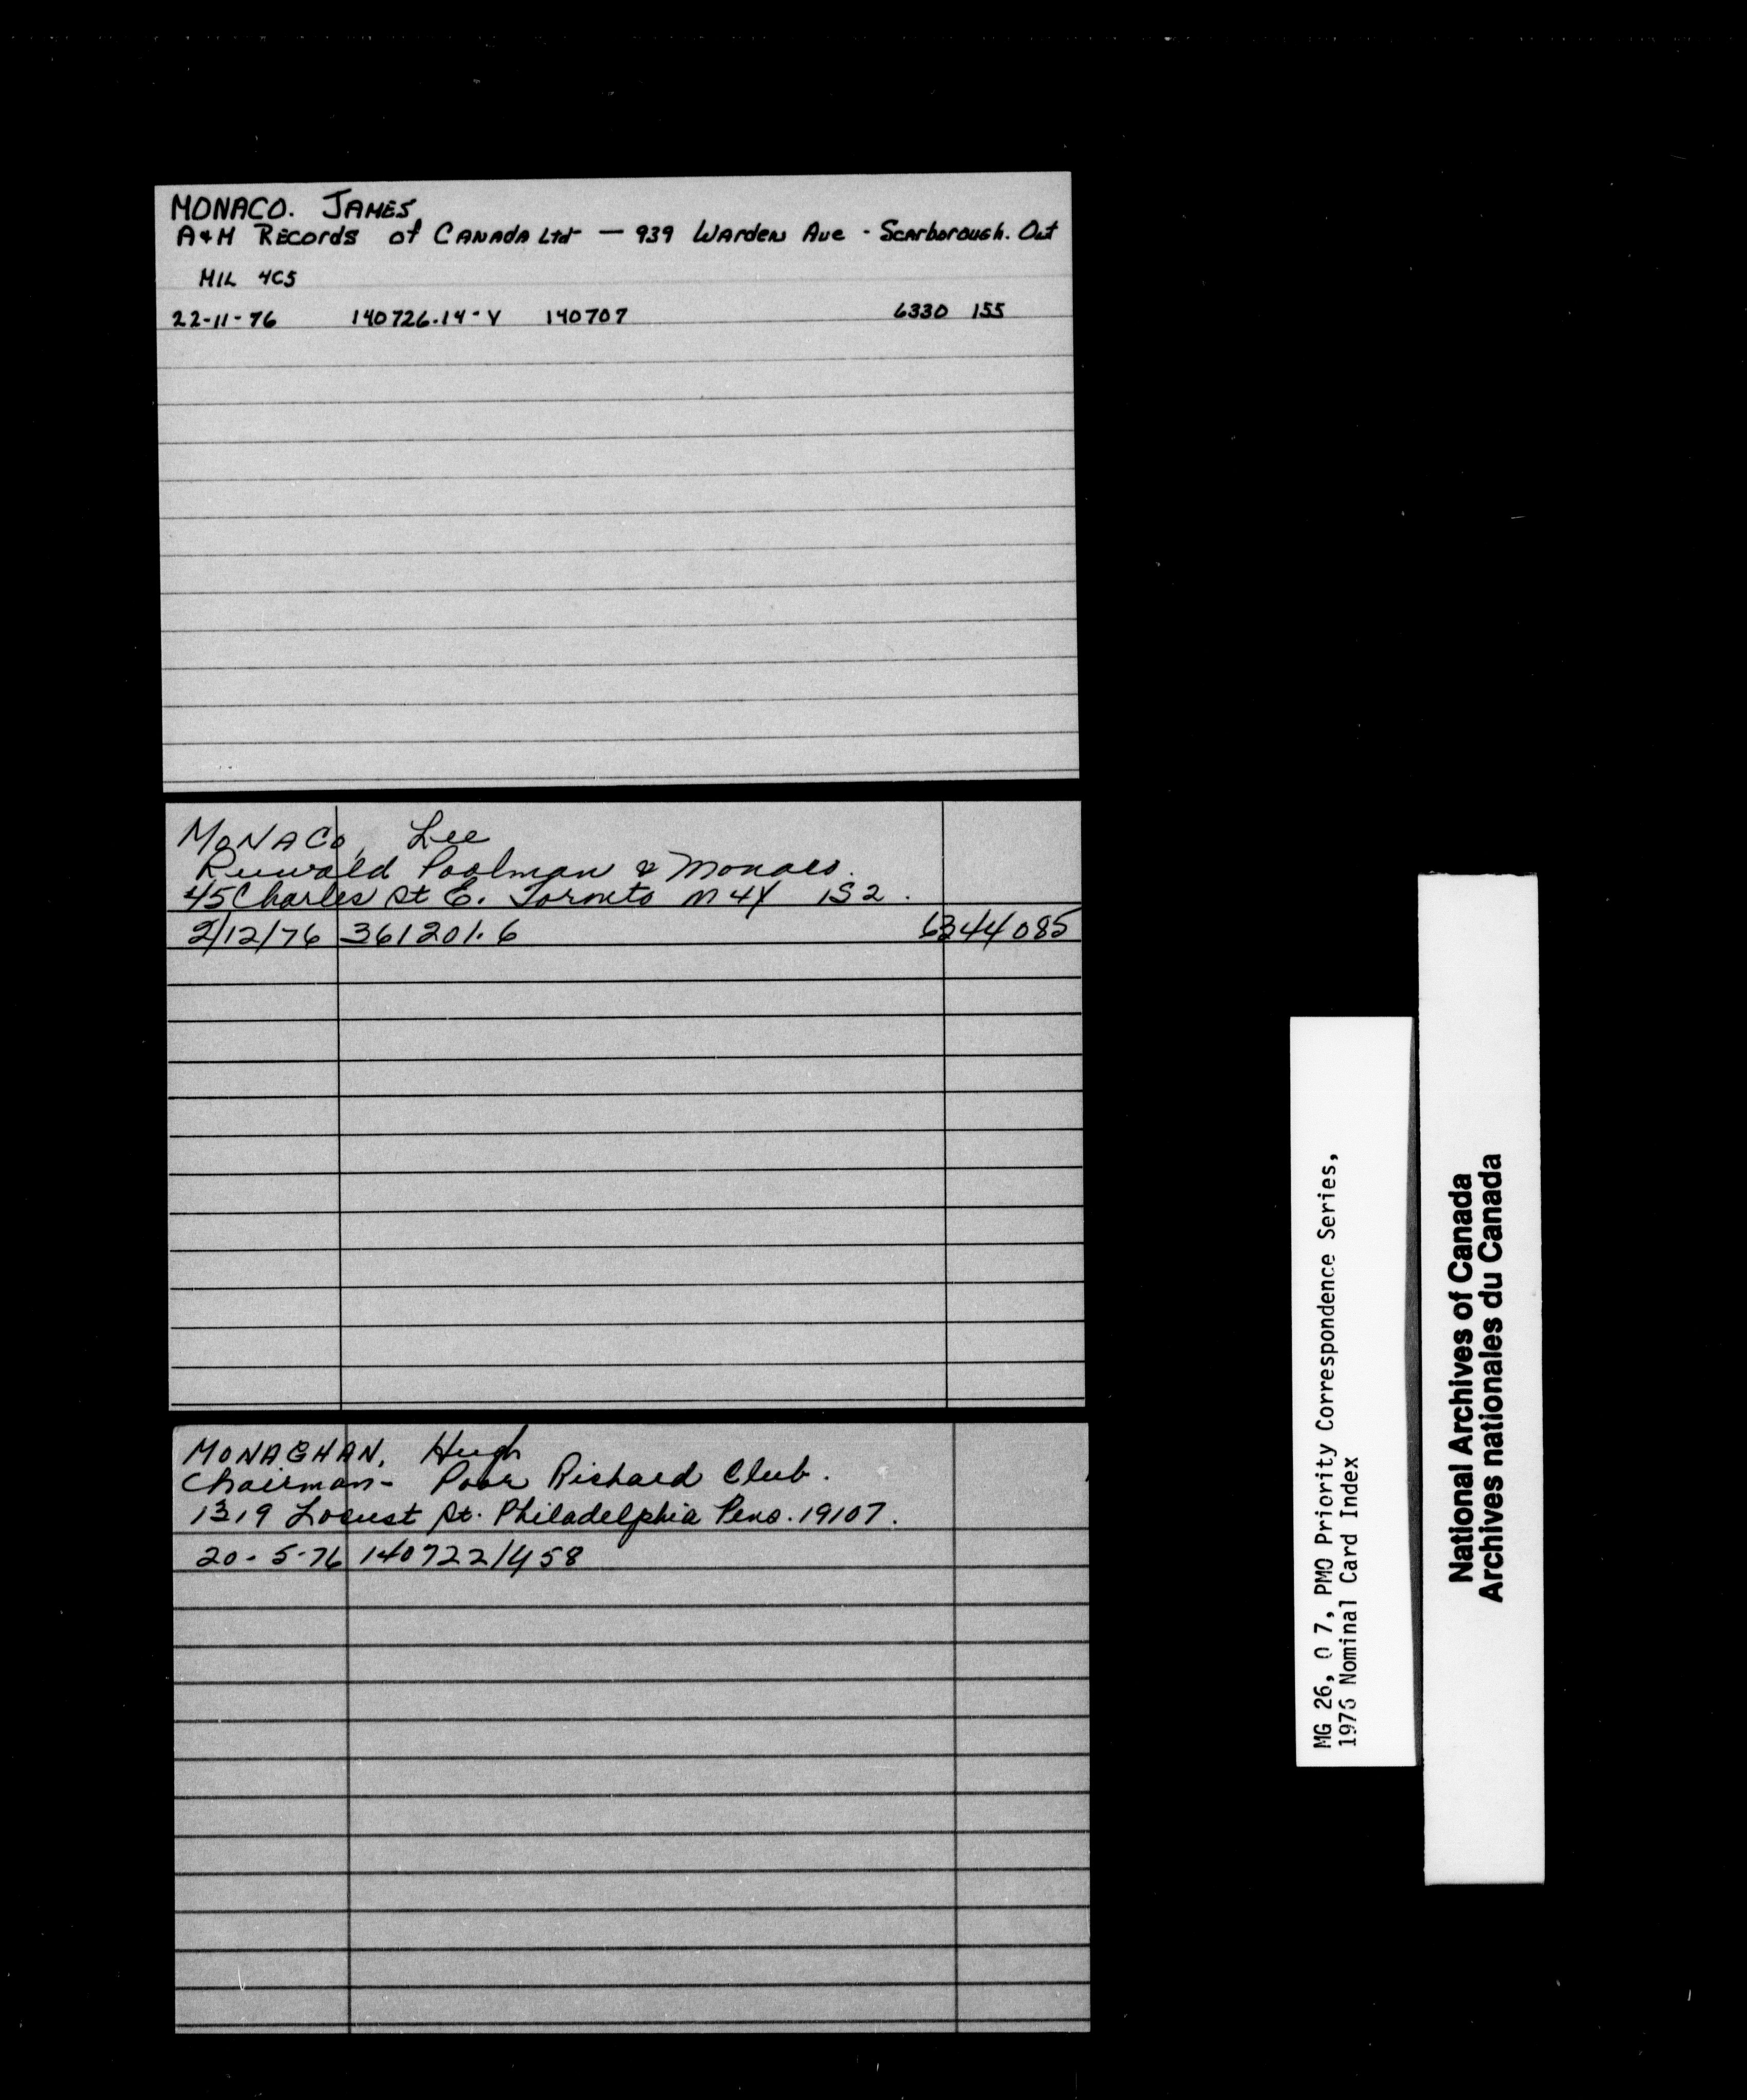 MONACO. JAMES
A&M Records of CANADA Ltd — 939 Warden Ave - Scarborough. Ont
M1L 4C5
22-11-76 140726.14-V 140707 6330 155
MONACO, Lee
Ruwald Poolman & Monaco.
45 Charles St E. Toronto M4Y 1S2.
2/12/76 361201.6 6344085
MONAGHAN, Hugh
Chairman- Poor Richard Club.
1319 Locust St. Philadelphia Penn. 19107.
20-5-76 140722/458
MG 26, O 7, PMO Priority Correspondence Series,
1976 Nominal Card Index
National Archives of Canada
Archives nationales du Canada